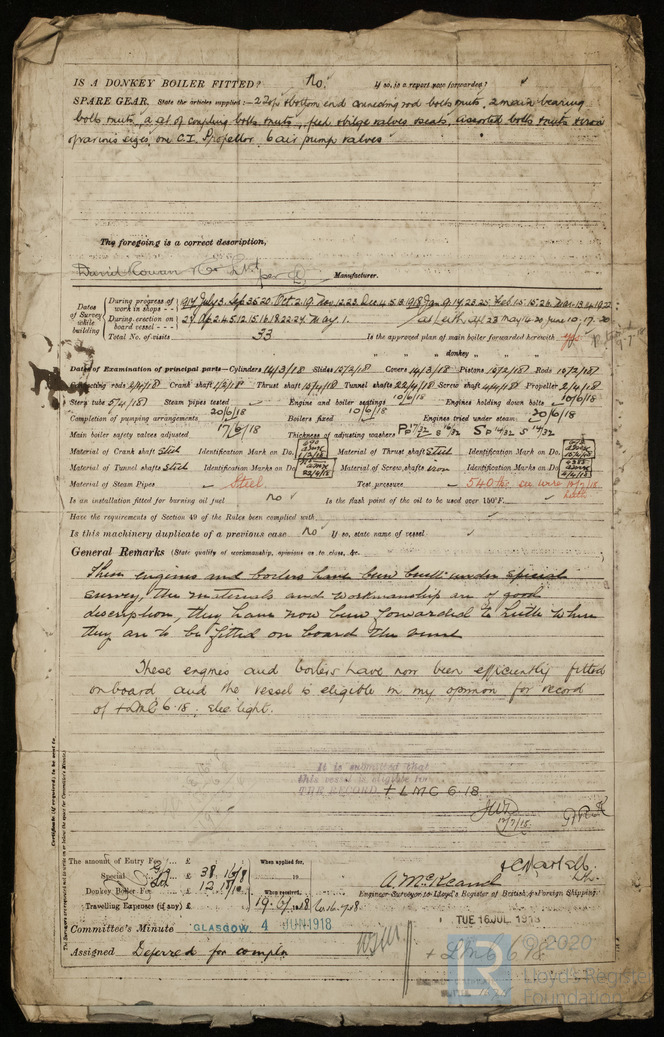 IS A DONKEY BOILER FITTED? No. If so, is a report now forwarded?
SPARE GEAR. State the articles supplied:— 2 Top & bottom end connecting rod bolts & nuts, 2 main bearing
bolts & nuts, a set of coupling bolts & nuts, feed & bilge valves & seats, assorted bolts & nuts & iron
of various sizes, one C.I. Propeller, 6 air pump valves
The foregoing is a correct description,
David Rowan & Co. Ltd per Manufacturer.
Dates of Survey while building
During progress of work in shops - - 1917 July 3 Sep 3 6 20 Oct 2 19 Nov 12 23 Dec 4 5 13 1918 Jan 9 14 23 25 Feb 15 26 Mar 13 14 19 22
During erection on board vessel - - - 27 Ap 2 4 5 12 15 16 18 22 24 May 1. (at Leith, Ap 23 May 14 20 June 10, 17, 20
Total No. of visits 33 Is the approved plan of main boiler forwarded herewith yes
" " " donkey " " "
Dates of Examination of principal parts—Cylinders 14/3/18 Slides 15/2/18 Covers 14/3/18 Pistons 15/2/18 Rods 15/2/18
Connecting rods 2/4/18 Crank shaft 1/2/18 Thrust shaft 15/4/18 Tunnel shafts 22/4/18 Screw shaft 4/4/18 Propeller 2/4/18
Stern tube 5/4/18 Steam pipes tested Engine and boiler seatings 10/6/18 Engines holding down bolts 10/6/18
Completion of pumping arrangements 20/6/18 Boilers fixed 10/6/18 Engines tried under steam 20/6/18
Main boiler safety valves adjusted 17/6/18 Thickness of adjusting washers P P 17/32 S 16/32 S P 14/32 S 14/32
Material of Crank shaft Steel Identification Mark on Do. Material of Thrust shaft Steel Identification Mark on Do.
Material of Tunnel shafts Steel Identification Marks on Do. 22/4/18 Material of Screw shafts iron Identification Marks on Do. 4/4/18
Material of Steam Pipes Steel. Test pressure 540 lbs. Leith
Is an installation fitted for burning oil fuel no Is the flash point of the oil to be used over 150°F.
Have the requirements of Section 49 of the Rules been complied with
Is this machinery duplicate of a previous case No If so, state name of vessel
General Remarks (State quality of workmanship, opinions as to class, &c.
These engines and boilers have been built under special
survey, the materials and workmanship are of good
description, they have now been forwarded to Leith where
they are to be fitted on board the vessel
These engines and boilers have now been efficiently fitted
onboard and the vessel is eligible in my opinion for record
of + LMC 6.18. Elec. light.
It is submitted that
this vessel is eligible for
THE RECORD + LMC 6.18
17/7/18
Certificate (if required) to be sent to
The Surveyors are requested not to write on or below the space for Committee's Minute.
The amount of Entry Fee ... £
Special ... £ 38
Donkey Boiler Fee ... £ 12
Travelling Expenses (if any) £
When applied for,
19
When received,
A. McKeand
Engineer Surveyor to Lloyd's Register of British & Foreign Shipping.
Committee's Minute GLASGOW 4 JUN 1918 TUE 16 JUL 1918
Assigned Deferred for compln + LMC 6 18
© 2020
Lloyd's Register
Foundation